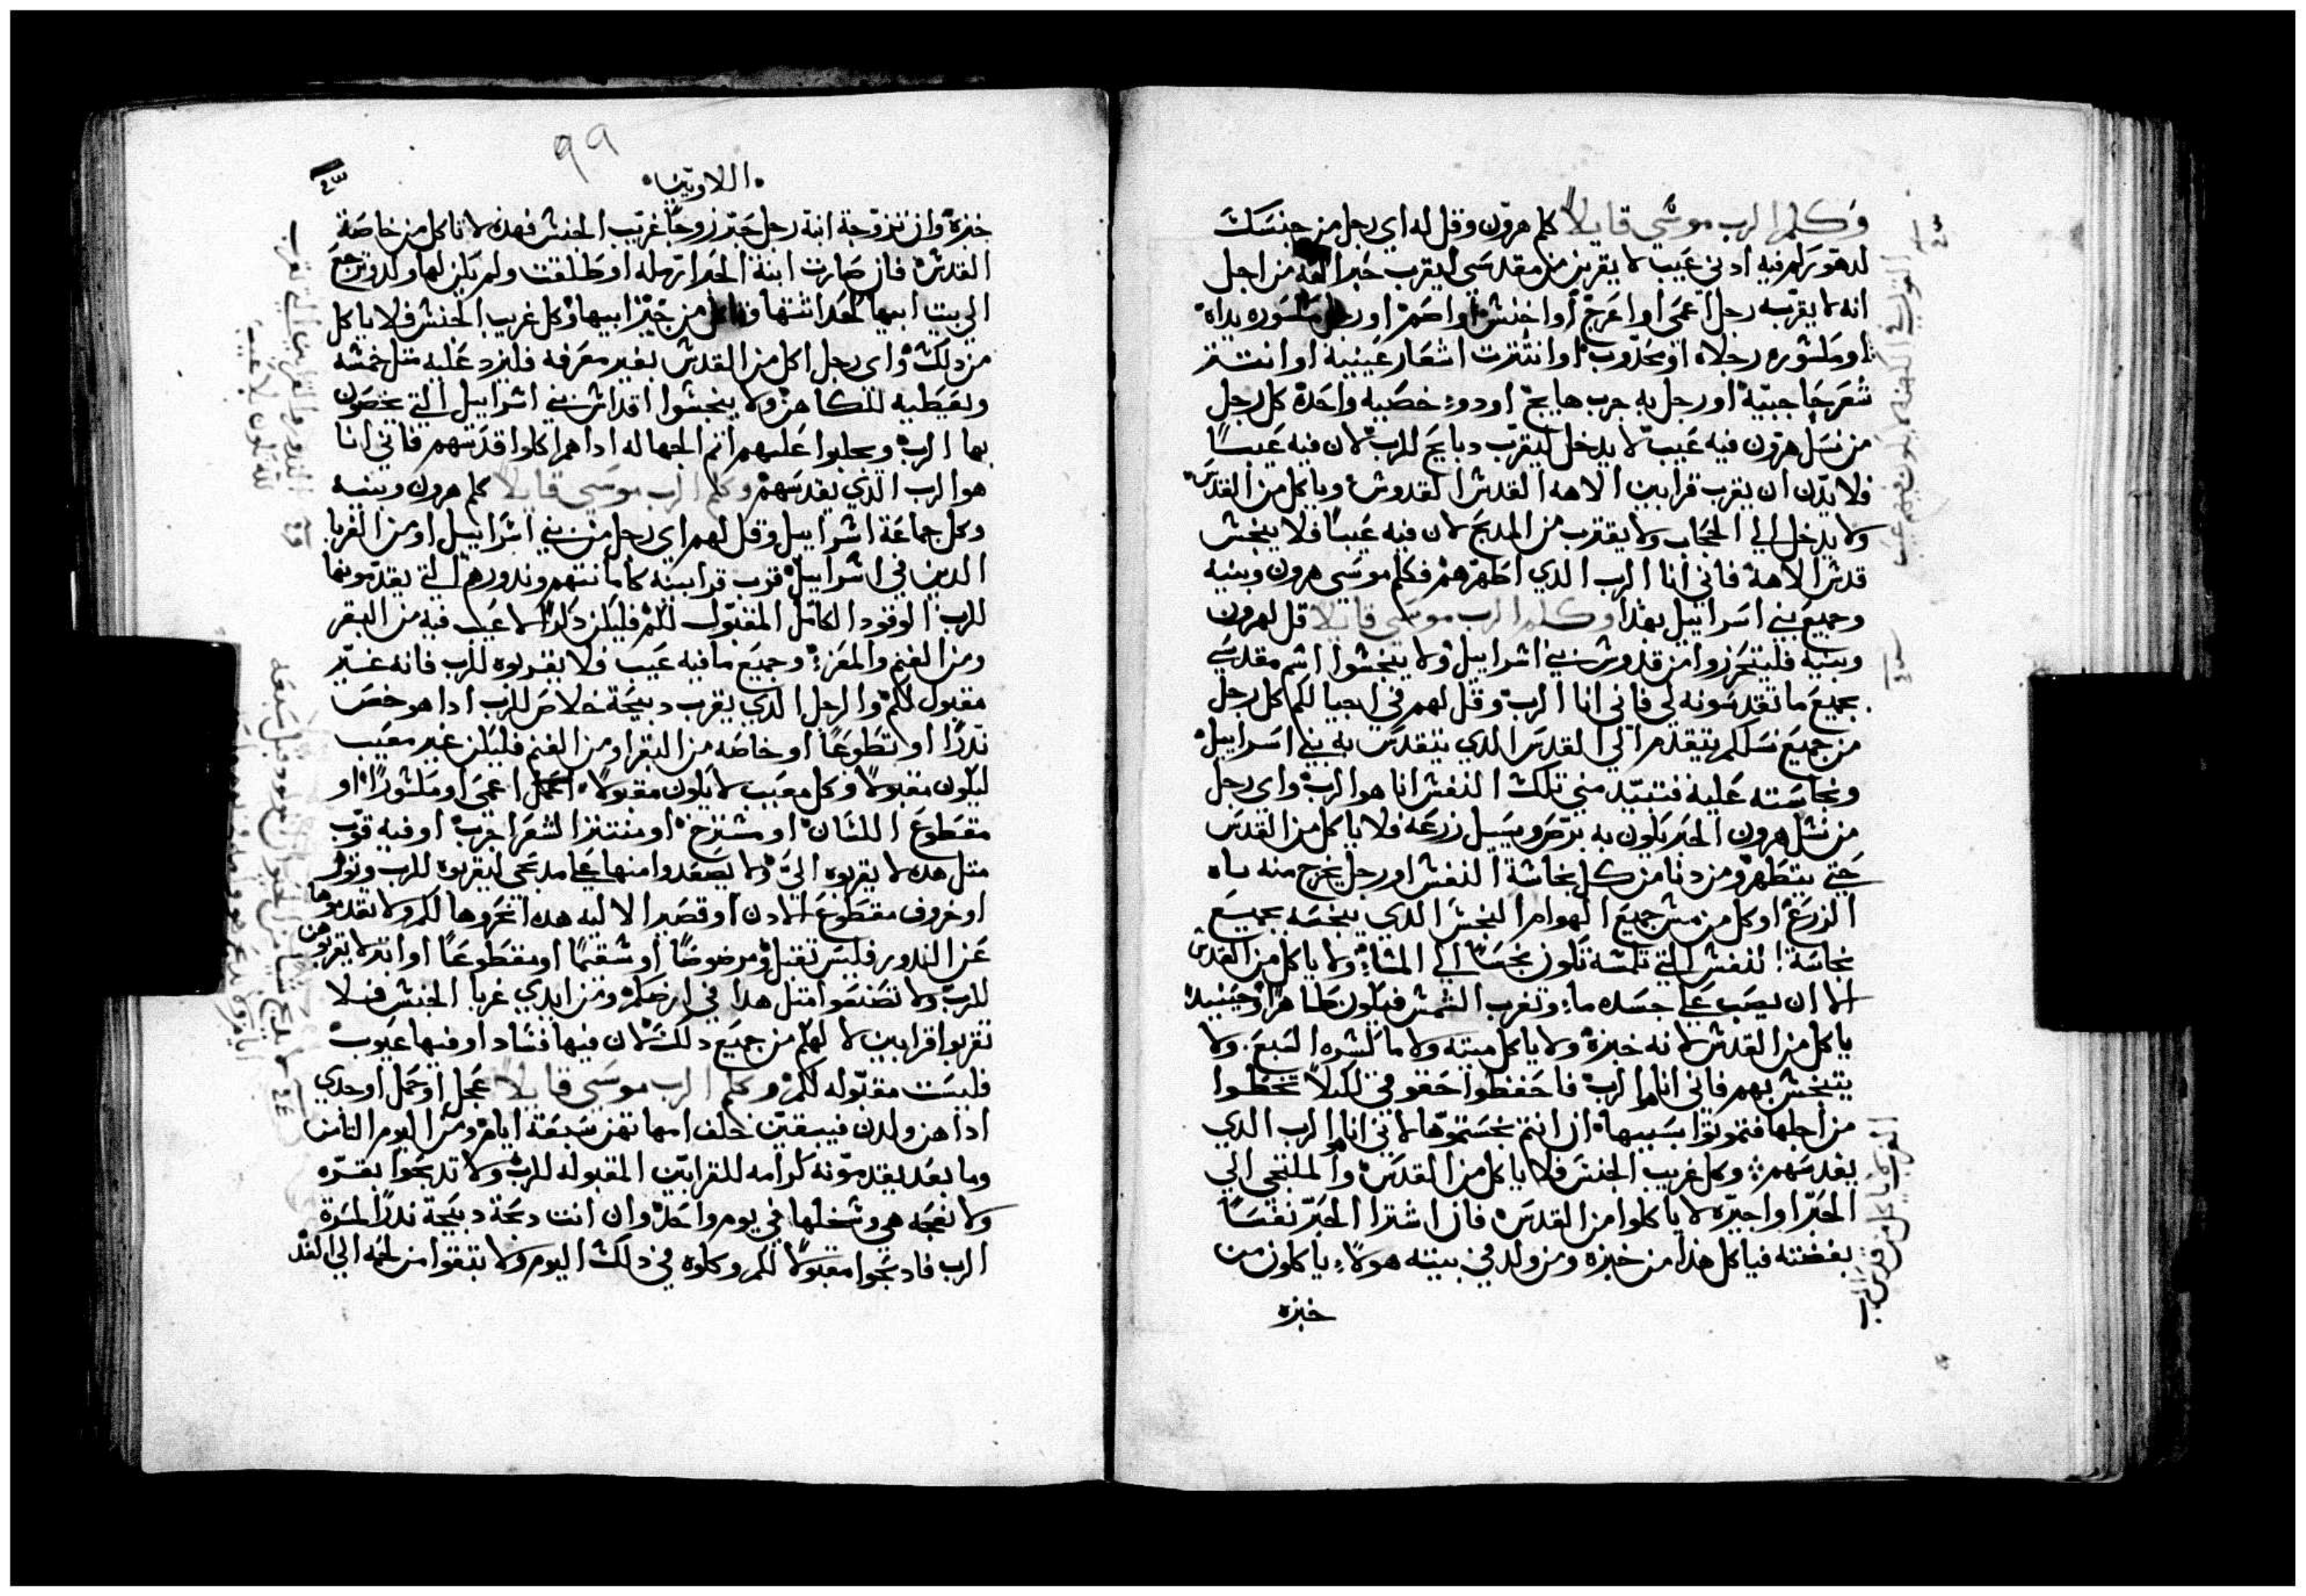 وكلم الرب موسي قايلاً كلم هرون وقل له اي رجل من جنسك
لدهورهم فيه ادني عيب لا يقربن من مقدسي ليقرب خبز الهه من اجل
انه لا يقربه رجل اعمي او اعرج او اخنش او اصم او رجل مكسوره يداه
او مكسوره رجلاه او محدوب او انتترت اشعار عينيه او انتتر
شعر حاجبيه او رجل به جرب هايج او دو خصيه واحده كل رجل
من نسل هرون فيه عيب لا يدخل ليقرب دبايح للرب لان فيه عيباً
فلا يدن ان يقرب قرابين الاهه القدس القدوس وياكل من القدس
ولا يدخل الي الحجاب ولا يقترب من المدبح لان فيه عيباً فلا ينجس
قدس الاهه فاني انا الرب الدي اطهرهم فكلم موسي هرون وبنيه
وجميع بني اسراييل بهدا وكلم الرب موسي قايلا قل لهرون
وبنيه فليتحرزوا من قدوس بني اسراييل ولا ينجسوا اسم مقدسي
بجميع ما تقدسونه لي فاني انا الرب وقل لهم في اجيالكم كل رجل
من جميع نسلكم يتقدم الي القدس الدي يتقدس به بني اسراييل
ونجاسته عليه فتبيد مني تلك النفس انا هو الرب واي رجل
من نسل هرون الحبر يكون به برص ويسيل زرعه فلا ياكل من القدس
حتي يتطهر ومن دنا من كل نجاسة النفس او رجل يخرج منه ماه
الزرع او كل من مس جميع الهوام النجس الدي ينجسه بجميع
نجاسة النفس التي تلمسه تكون نجسه الي المساء ولا ياكل من القدس
الا ان يصب علي جسده ماء وتغرب الشمس فيكون طاهراً وحينيد
ياكل من القدس لانه خبزه ولا ياكل ميته ولا ما كسره السبع ولا
يتنجس بهم فاني انا الرب فاحفظوا حقوقي لكيلا تخطوا
من اجلها فتموتوا بسببها ان انتم نجستموها لاني انا هو الرب الدي
يقدسهم وكل غريب الجنس فلا ياكل من القدس والملتجي الي
الحبر او اجيره لا ياكلوا من القدس فان اشترا الحبر نفساً
بفضته فياكل هدا من خبزه ومن ولد في بيته هولاء ياكلون من
خبزه
الغريب لا ياكل من قدس الرب
٩٩
اللاويين
خبزه وان تزوجة ابنة رجل حبر زوجاً غريب الجنس فهده لا تاكل من خاصة
القدس فان صارت ابنة الحبر ارمله او طلقت ولم يكن لها ولد وترجع
الي بيت ابيها كحداثتها فتاكل من خبز ابيها وكل غريب الجنس فلا ياكل
من دلك واي رجل اكل من القدس بغير معرفه فليزد عليه مثل خمسه
ويعطيه للكاهن ولا ينجسوا اقداس بني اسراييل التي يخصون
بها الرب ويجلبوا عليهم اثم الجهاله ادا هم اكلوا قدسهم فاني انا
هو الرب الدي يقدسهم وكلم الرب موسي قايلاً كلم هرون وبنيه
وكل جماعة اسراييل وقل لهم اي رجل من بني اسراييل او من الغربا
الدين في اسراييل قرب قرابينه كامانتهم وندورهم التي يقدمونها
للرب الوقود الكامل المقبول لكم فليكن دكراً لا عيب فيه من البقر
ومن الغنم والمعز وجميع ما فيه عيب فلا يقربوه للرب فانه غير
مقبول لكم والرجل الدي يقرب دبيحة خلاص للرب ادا هو خص
ندراً او تطوعاً او خاصه من البقر او من الغنم فليكن غير معيب
ليكون مقبولاً وكل معيب لا يكون مقبولاً اعمي او مكسوراً او
مقطوع اللسان او مشنزح او منتتر الشعر اجرب او فيه قوب
مثل هده لا يقربوه الي ولا يصعدوا منها علي مدبحي ليقربوه للرب وثور
او خروف مقطوع الادن او قصير الاليه هده اتحروها لكم ولا تقدموها
عن الندور فليس تقبل ومرضوضاً او سقيماً او مقطوعاً او ابتر لا يقربوهن
للرب ولا تصنعوا مثل هدا في ارضكم ومن ايدي غربا الجنس فلا
تقربوا قرابين لالهكم من جميع دلك لان فيها فساد او فيها عيوب
فليست مقبوله لكم وكلم الرب موسي قايلاً عجل او حمل او جدي
ادا هن ولدن فيبقين خلف امهاتهن سبعة ايام ومن اليوم التامن
وما بعد يقدمونه كرامه للقرابين المقبوله للرب ولا تدبحوا بقره
ولا نعجه هي وسخلها في يوم واحد وان انت دبحة دبيحة ندراً لمسرة
الرب فادبحوا مقبولاً لكم وكلوه في دلك اليوم ولا تبقوا من لحمه الي الغد